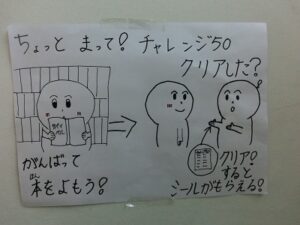 ちょっと まって! チャレンジ50
クリアした?
がんばって
ほん
本をよもう!
クリア!
すると
シールがもらえる!